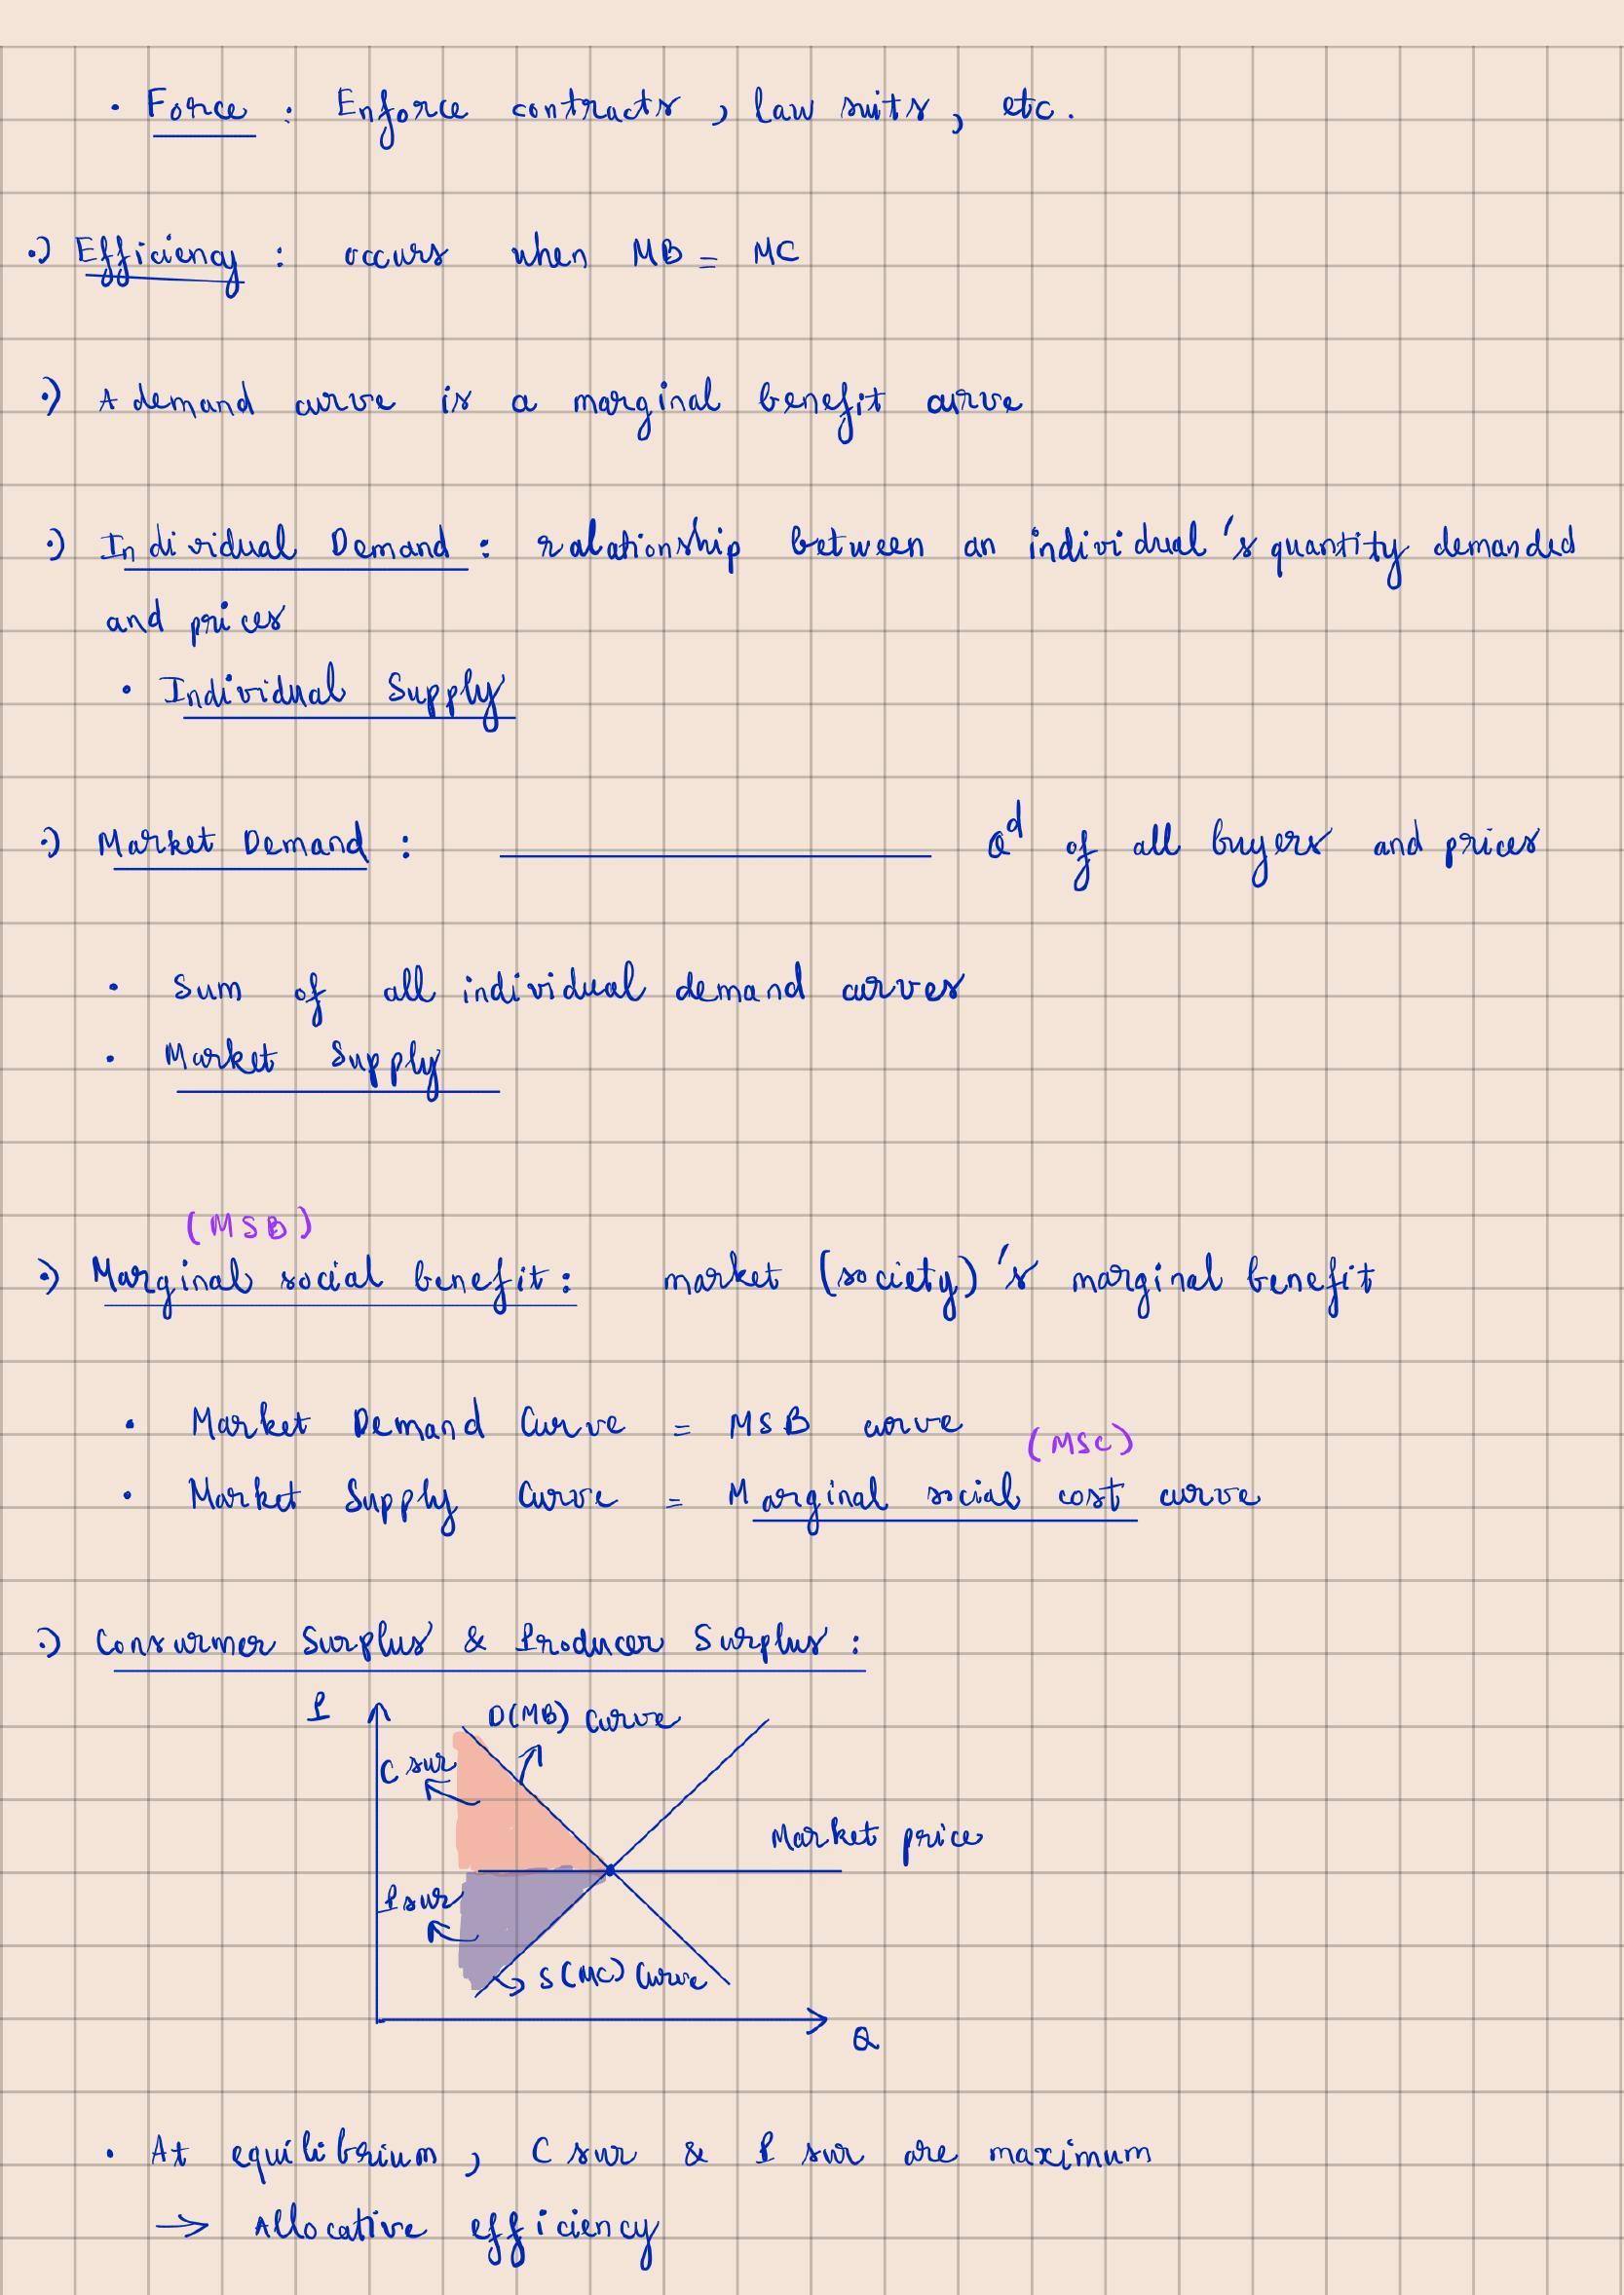 • Force : Enforce contracts , law suits , etc.
•) Efficiency : occurs when MB = MC
•) A demand curve is a marginal benefit curve
•) Individual Demand : relationship between an individual's quantity demanded
and prices
• Individual Supply
•) Market Demand : ________ Q^d of all buyers and prices
• Sum of all individual demand curves
• Market Supply
(MSB)
•) Marginal social benefit : market (society)'s marginal benefit
• Market Demand Curve = MSB curve
(MSC)
• Market Supply Curve = Marginal social cost curve
•) Consurmer Surplus & Producer Surplus :
P
D(MB) Curve
C sur
Market price
P sur
S(MC) Curve
Q
• At equilibrium , C sur & P sur are maximum
→ Allocative efficiency